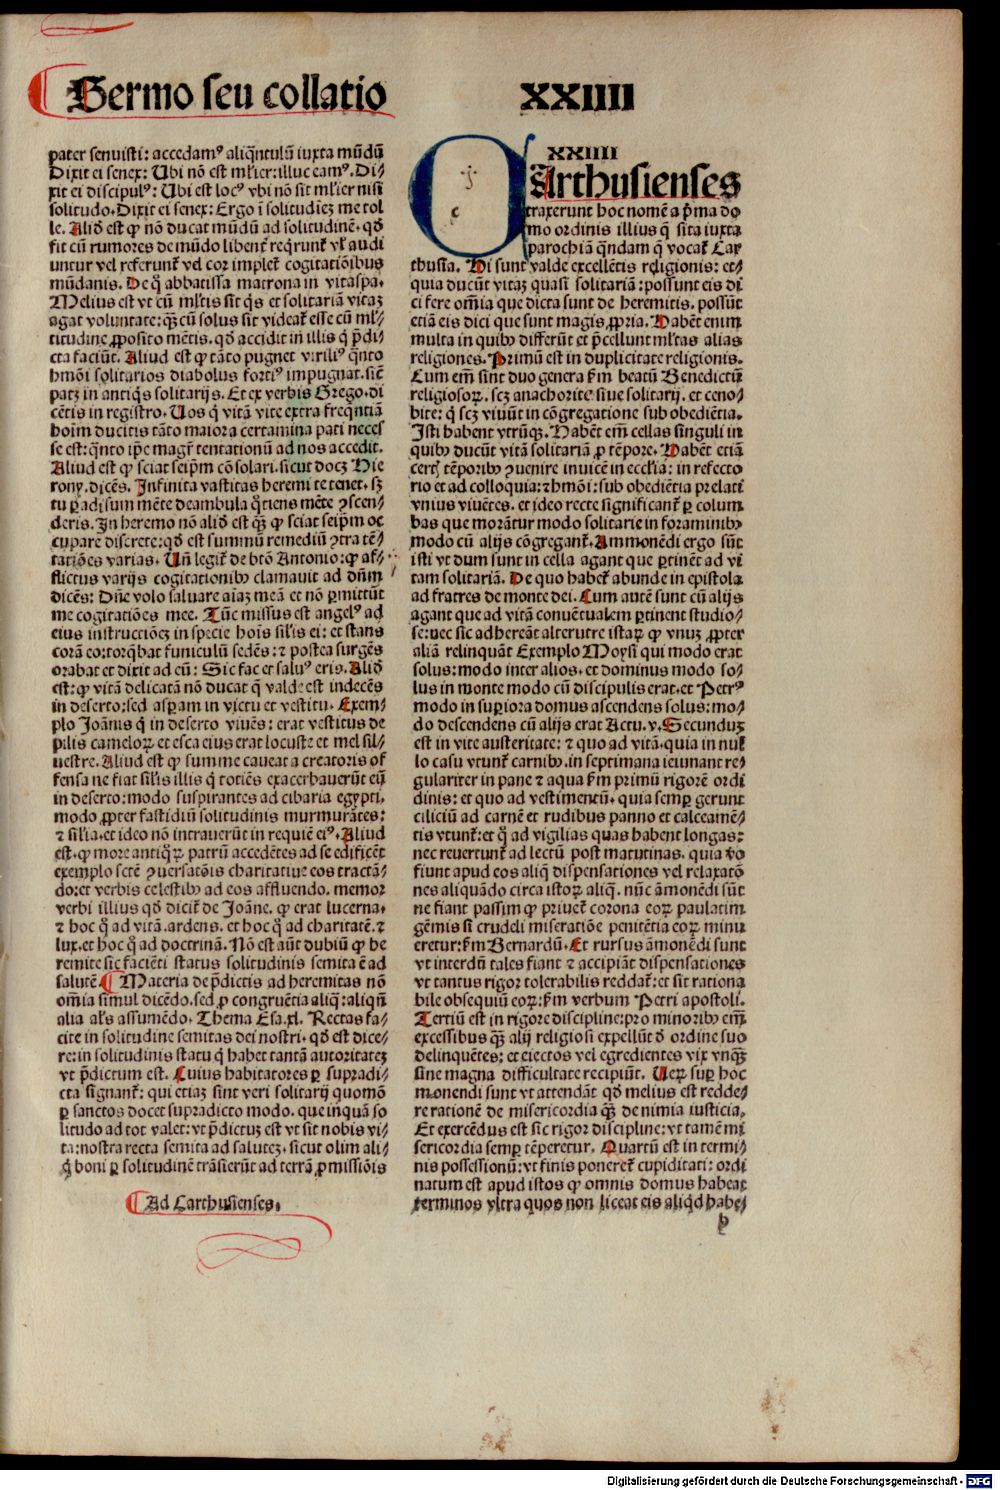 Sermo seu collatio
XXIIII
pater senuisti: accedamꝰ aliqͣntulū iuxta mūdū
Dixit ei senex: Ubi nō est ml̓ier: illuc eamꝰ. Di-
xit ei discipulꝰ: Ubi est locꝰ vbi nō sit ml̓ier nisi
solitudo. Dixit ei senex: Ergo ī solitudīez me tol
le. Aliđ est ꝙ nō ducat mūdū ad solitudinē. qđ
fit cū rumores de mūdo libent̄ req̄runt̄ vl̓ audi
untur vel referunt̄ vel cor implet̄ cogitatiōibus
mūdanis. De q̄ abbatissa matrona in vitaspa.
Melius est vt cū ml̓tis sit q̇s et solitariā vitaz
agat voluntate: qꝫ cū solus sit videat̄ esse cū ml̓-
titudine ꝓposito mētis. qđ accidit in illis q̇ p̄di-
cta faciūt. Aliud est ꝙ tāto pugnet virilꝰ qͣnto
hmōi solitarios diabolus fortiꝰ impugnat. sic̄
patꝫ in antiq̇s solitarijs. Et ex verbis Grego. di
cētis in registro. Uos q̇ vitā vite extra freqn̄tiā
hoīm ducitis tāto maiora certamina pati neces
se est: qͣnto ip̄e magr̄ tentationū ad nos accedit.
Aliud est ꝙ sciat seip̄m cōsolari. sicut docꝫ Hie
rony. dicēs. Infinita vastitas heremi te tenet. sꝫ
tu paradisum mēte deambula q̊tiens mēte ꝯscen-
deris. In heremo nō aliđ est qꝫ ꝙ sciat seip̄m oc
cupare discrete: qđ est summū remediū ꝯtra tē-
tatiōes varias. Un̄ legit̄ de btō Antonio: ꝙ af-
flictus varijs cogitationibꝰ clamauit ad dn̄m
dicēs: Dn̄e volo saluare aīaz meā et nō ꝑmittūt
me cogitatiōes mee. Tūc missus est angelꝰ ad
eius instructiōeꝫ in specie hoīs sil̓is ei: et stans
corā eo: torq̄bat funiculū sedēs: ⁊ postea surgēs
orabat et dixit ad eū: Sic fac et saluꝰ eris. Aliđ
est: ꝙ vitā delicatā nō ducat q̄ valde est indecēs
in deserto: sed asꝑam in victu et vestitu. Exem-
plo Joānis q̇ in deserto viuēs: erat vestitus de
pilis cameloꝝ et esca eius erat locuste et mel sil-
uestre. Aliud est ꝙ summe caueat a creatoris of
fensa ne fiat sil̓is illis q̇ totiēs exacerbauerūt eū
in deserto: modo suspirantes ad cibaria egypti.
modo ꝓpter fastidiū solitudinis murmurātes:
⁊ sil̓ia. et ideo nō intrauerūt in requiē eiꝰ. Aliud
est. ꝙ more antiq̊ꝝ patrū accedētes ad se edificēt
exemplo sctē ꝯuersatōis charitatiue eos tractā-
do: et verbis celestibꝰ ad eos affluendo. memor
verbi illius qđ dicit̄ de Joāne. ꝙ erat lucerna.
⁊ hoc q̊ ad vitā. ardens. et hoc q̊ ad charitatē. ⁊
lux. et hoc q̊ ad doctrinā. Nō est aūt dubiū ꝙ he
remite sic faciēti status solitudinis semita ē ad
salutē. Materia de p̄dictis ad heremitas nō
om̄ia simul dicēdo. sed ꝓ congruētia aliq̄: aliqn̄
alia al̓s assumēdo. Thema Esa. xl. Rectas fa-
cite in solitudine semitas dei nostri. qđ est dice-
re: in solitudinis statu q̇ habet tantā autoritateꝫ
vt p̄dictum est. Cuius habitatores ꝑ supradi-
cta signant̄: qui etiaꝫ sint veri solitarij quomō
ꝑ sanctos docet supradicto modo. que inquā so
litudo ad tot valet: vt p̄dictuꝫ est vt sit nobis vi-
ta: nostra recta semita ad saluteꝫ. sicut olim ali-
q̇ boni ꝑ solitudinē trāsierūt ad terrā ꝓmissiōis
Ad Carthusienses.
XXIIII
c
CArthusienses
traxerunt hoc nomē a p̄ma do
mo ordinis illius q̄ sita iuxta
parochiā qn̄dam q̄ vocat̄ Car
thusia. Hi sunt valde excellētis religionis: et-
quia ducūt vitaꝫ quasi solitariā: possunt eis di
ci fere om̄ia que dicta sunt de heremitis. possūt
etiā eis dici que sunt magis ꝓpria. Habēt enim
multa in quibꝰ differūt et p̄cellunt ml̓tas alias
religiones. Primū est in duplicitate religionis.
Cum em̄ sint duo genera ẜm beatū Benedictū
religiosoꝝ. scꝫ anachorite siue solitarij. et ceno-
bite: q̇ scꝫ viuūt in cōgregatione sub obediētia.
Isti habent vtrūqꝫ. Habēt em̄ cellas singuli in
quibꝰ ducūt vitā solitariā ꝓ tēpore. Habēt etiā
certꝭ tēporibꝰ ꝯuenire inuicē in ecclīa: in refecto
rio et ad colloquia: ⁊ hmōi: sub obediētia prelati
vnius viuētes. et ideo recte significant̄ ꝑ colum
bas que morātur modo solitarie in foraminibꝰ
modo cū alijs cōgregant̄. Ammonēdi ergo sūt
isti vt dum sunt in cella agant que ꝑtinēt ad vi
tam solitariā. De quo habet̄ abunde in epistola
ad fratres de monte dei. Cum autē sunt cū alijs
agant que ad vitā conuētualem ꝑtinent studio-
se: nec sic adhereāt alterutre istaꝝ ꝙ vnaꝫ ꝓpter
aliā relinquāt Exemplo Moysi qui modo erat
solus: modo inter alios. et dominus modo so-
lus in monte modo cū discipulis erat. et Petrꝰ
modo in suꝑiora domus ascendens solus: mo-
do descendens cū alijs erat Actu. v. Secunduꝫ
est in vite austeritate: ⁊ quo ad vitā. quia in nul
lo casu vtunt̄ carnibꝰ. in septimana ieiunant re-
gulariter in pane ⁊ aqua ẜm primū rigorē ordi
dinis: et quo ad vestimentū. quia semꝑ gerunt
ciliciū ad carnē et rudibus panno et calceamē-
tis vtunt̄: et q̊ ad vigilias quas habent longas:
nec reuertunt̄ ad lectū post matutinas. quia vo
fiunt apud eos aliq̄ dispensationes vel relaxatō
nes aliquādo circa istoꝝ aliq̄. nūc āmonēdi sūt
ne fiant passim ꝙ priuet̄ corona eoꝝ paulatim
gēmis si crudeli miseratiōe penitētia eoꝝ minu
eretur: ẜm Bernardū. Et rursus āmonēdi sunt
vt interdū tales fiant ⁊ accipiāt dispensationes
vt tantus rigor tolerabilis reddat̄: et sit rationa
bile obsequiū eoꝝ: ẜm verbum Petri apostoli.
Tertiū est in rigore discipline: pro minoribꝰ em̄
excessibus qꝫ alij religiosi expellūt đ ordine suo
delinquētes: et eiectos vel egredientes vix vnqꝫ
sine magna difficultate recipiūt. Ueꝝ suꝑ hoc
monendi sunt vt attendāt qđ melius est redde-
re rationē de misericordia qꝫ de nimia iusticia.
Et exercēdus est sic rigor discipline: vt tamē mi
sericordia semꝑ tēperetur. Quartū est in termi-
nis possessionū: vt finis poneret̄ cupiditati: ordi
natum est apud istos ꝙ omnis domus habeat
terminos vltra quos non liceat eis aliqđ habe-
h
Digitalisierung gefördert durch die Deutsche Forschungsgemeinschaft - DFG